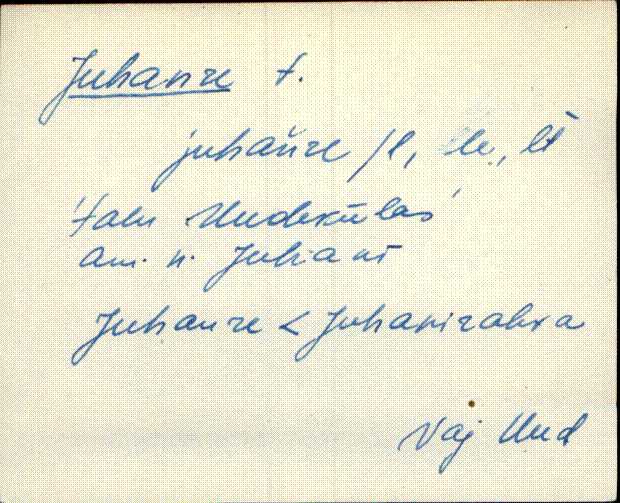 Juhanre t.
juhaǹre /l, le, lt
'talu Uudekülas'
am. n. Juhani
Juhanre < Juhanirahva
Vaj Uud